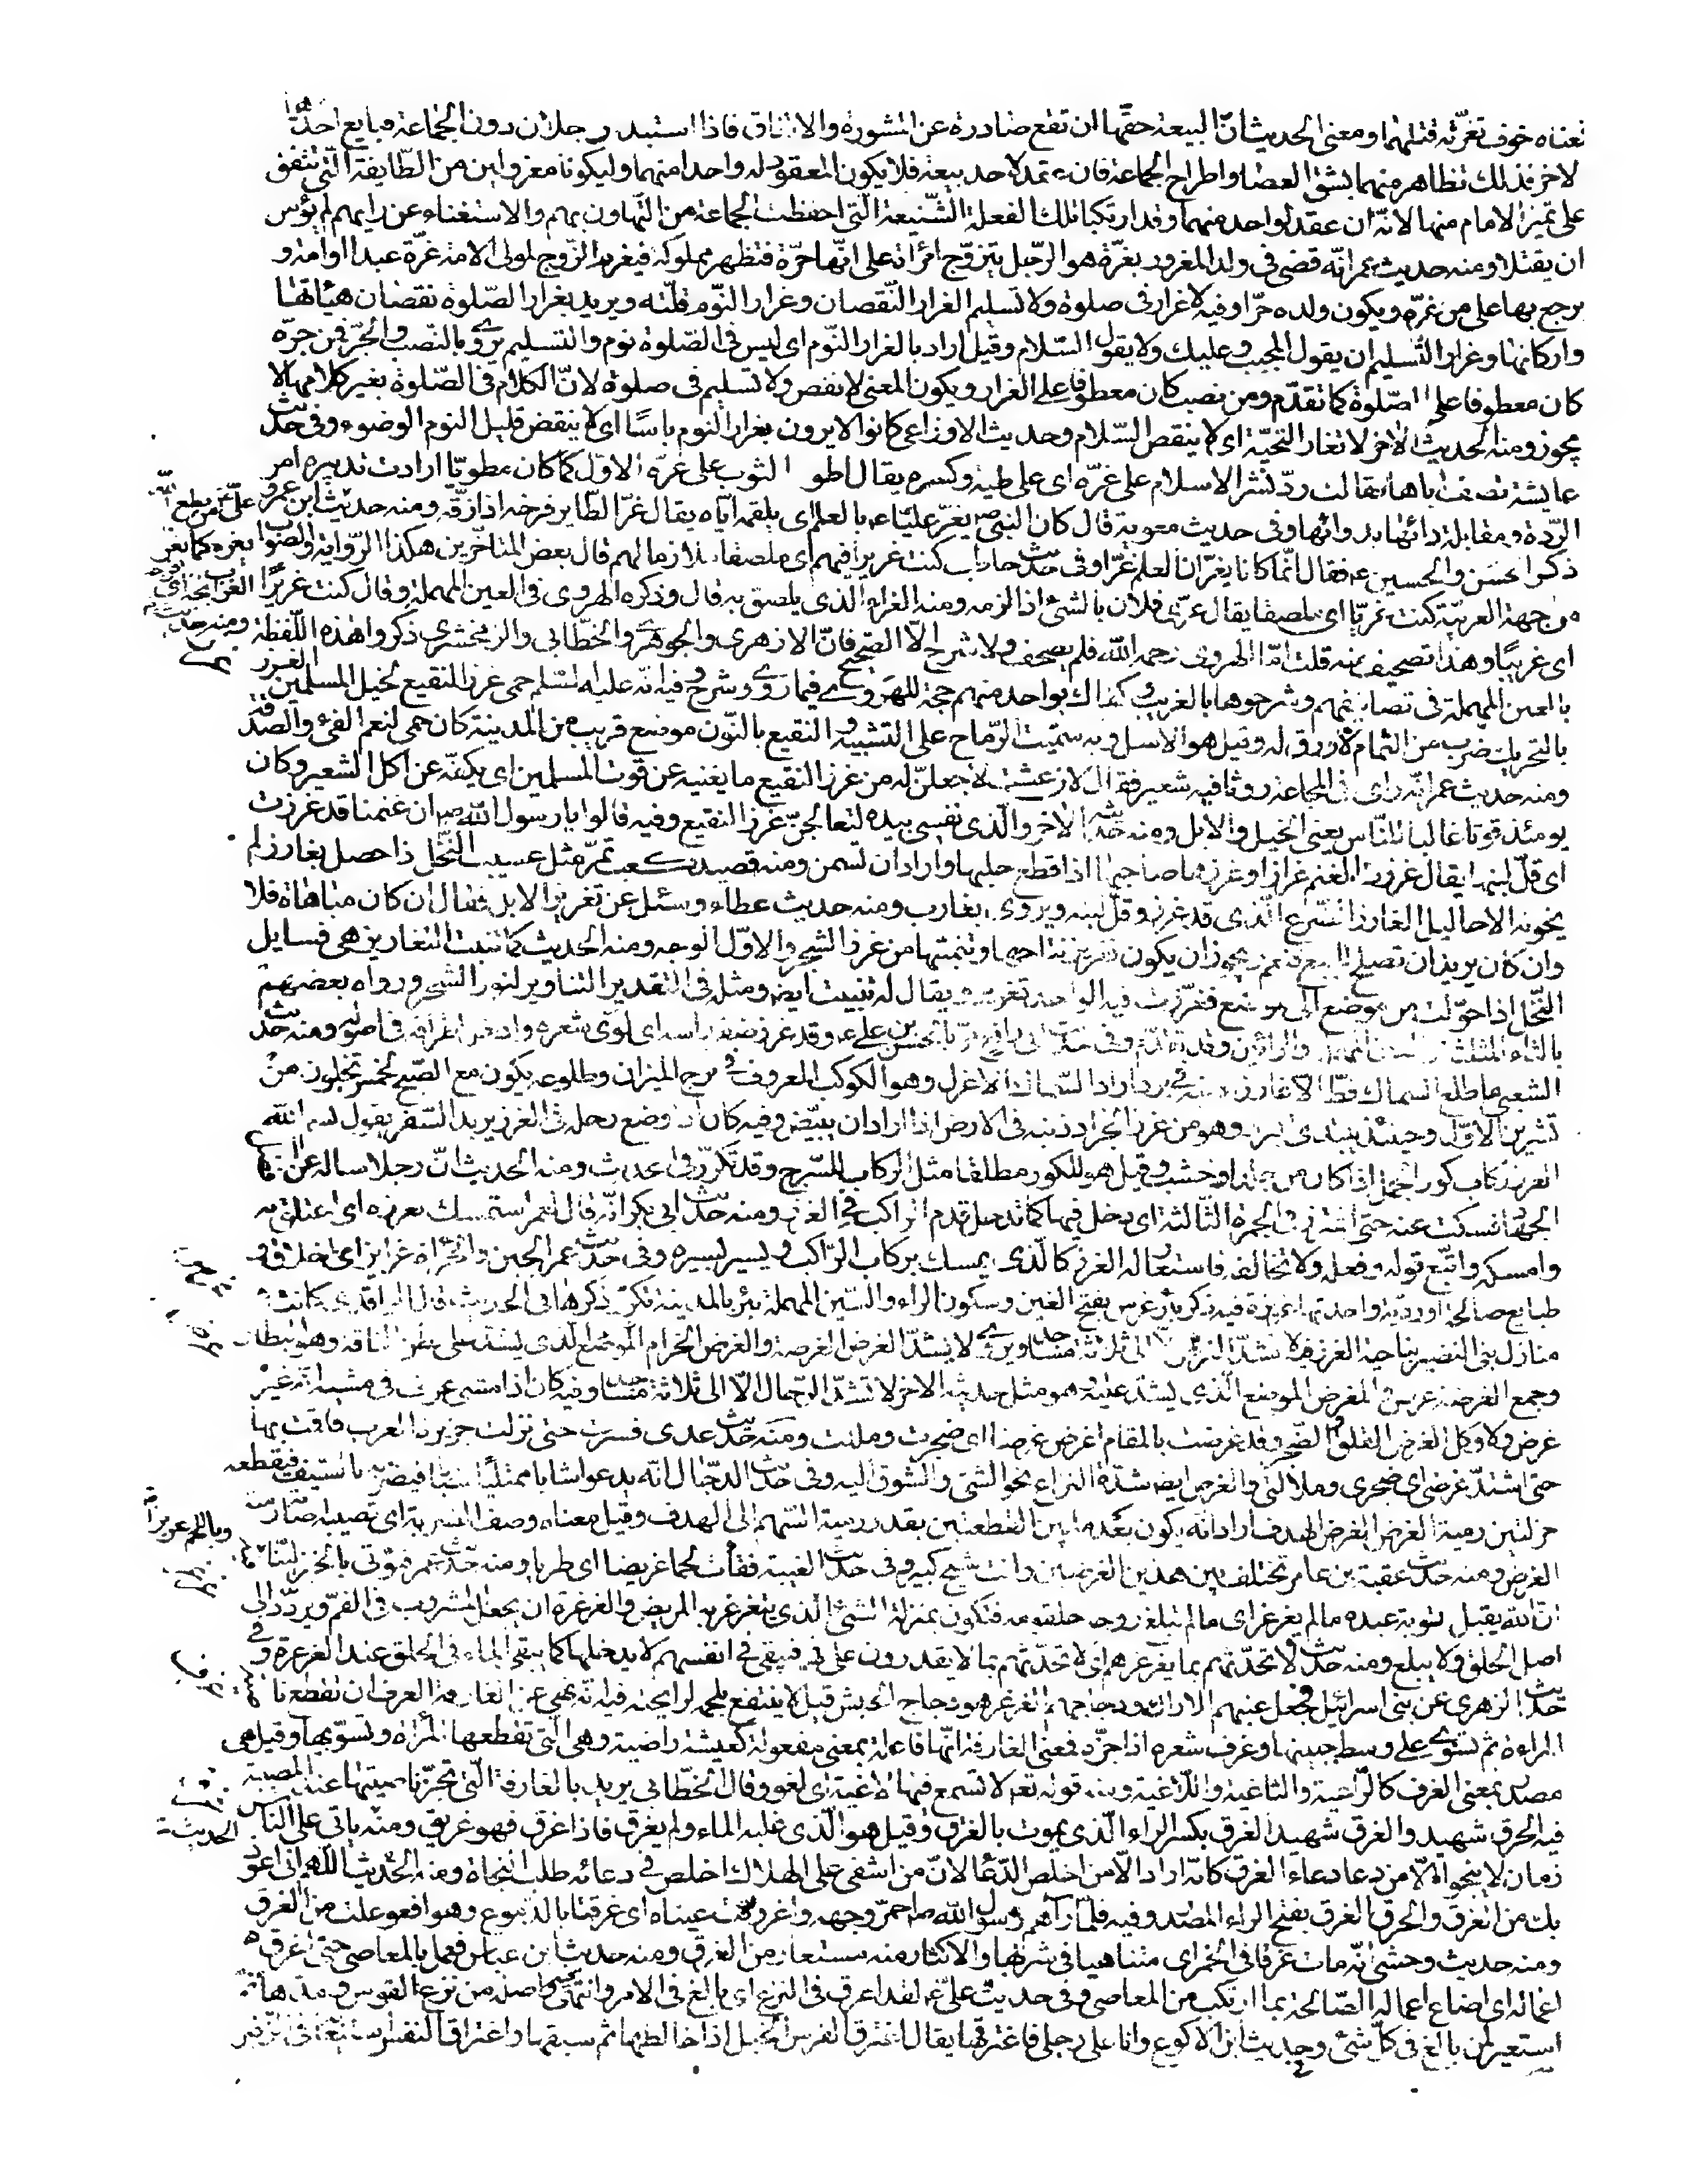 تعناه خوف تغرّته قتلهما ومعنى الحديث انّ البيعة حقّها ان تقع صادرة عن المشورة والاتفاق فاذا استبد رجلان دون الجماعة فبايع احدهما
لاخر فذلك تظاهر منهما بشق العصا واطراح الجماعة فان عقد لاحد بيعة فلا يكون المعقود له واحدا منهما وليكونا معزولين من الطّايفة التي تتفق
على تميز الامام منها لانّه ان عقد لواحد منهما وقد ارتكبا تلك الفعلة الشّنيعة التي احفظت الجماعة من التّهاون بهم والاستغناء عن رايهم لم يؤمن
ان يقتلا ومنه حديث عمر انّه قضى في ولد المغرور بغرّة هو الرّجل يتزوّج امرأة على انّها حرّة فتظهر مملوكة فيغرم الزّوج لمولى الامة غرّة عبدا او امة و
يرجع بها على من غرّه ويكون ولده حرّا وفيه لا غرار في صلوة ولا تسليم الغرار النّقصان وغرار النّوم قلّته ويريد بغرار الصّلوة نقصان هيأتها
واركانها وغرار التّسليم ان يقول المجيب وعليك ولا يقول السّلام وقيل اراد بالغرار النّوم اى ليس في الصّلوة نوم والتسليم يروى بالنّصب والجرّ فمن جرّه
كان معطوفا على الصّلوة كما تقدّم ومن نصب كان معطوفا على الغرار ويكون المعنى لا نقص ولا تسليم في صلوة لانّ الكلام في الصّلوة بغير كلامها لا
يجوز ومنه الحديث الاخر لا تغار التحيّة اى لا ينقص السّلام وحديث الاوزاعى كانوا لا يرون بغرار النوم باسًا اى لا ينقض قليل النوم الوضوء وفى حديث
عايشة تصف اباها فقالت ردّ نشر الاسلام على غرّه اى على طيه وكسره يقال اطو الثوب على غرّه الاوّل كما كان مطويّا ارادت تدبيره امر
الرّدة ومقابلة دائها بدوائها وفى حديث معوية قال كان النبى ص يغرّ عليّا ع بالعلم اى يلقمه ايّاه يقال غرّ الطّاير فرخه اذا زقّه ومنه حديث ابن عمر
ذكر الحسن والحسين ع فقال انّما كانا يغرّان العلم غرّا وفى حديث حاطب كنت غريرا فيهم اى ملصقا ملازما لهم قال بعض المتاخّرين هكذا الرّواية والصّواب
من جهة العربيّة كنت غريّا اى ملصقا يقال غرى فلان بالشئ اذا لزمه ومنه الغراء الذى يلصق به قال وذكره الهروى فى العين المهملة وقال كنت عريرًا
اى غريبًا وهذا تصحيف منه قلت امّا الهروى رحمه الله فلم يصحف ولا شرح الّا الصّحيح فانّ الازهرى والجوهرى والخطّابى والزمخشرى ذكروا هذه اللّفظة
بالعين المهملة فى تصانيفهم وشرحوها بالغريب وكفاك بواحد منهم حجة للهروى فيما روى وشرح وفيه انّه عليه السّلم حمى غرز النقيع لخيل المسلمين الغرز
بالتحريك ضرب من الثمام لا ورق له وقيل هو الاسل وبه سمّيت الرّماح على التشبيه والنقيع بالنّون موضع قريب من المدينة كان حمى لنعم الفئ والصّدقة
ومنه حديث عمر انّه راى فى المجاعة روثا فيه شعير فقال لئن عشت لاجعلنّ له من غرز النقيع ما يغنيه عن قوت المسلمين اى يكفّه عن اكل الشعير وكان
يومئذ قوتا غالبا للنّاس يعنى الخيل والابل ومنه حديثه الاخر والّذى نفسى بيده لتعالجنّ غرز النقيع وفيه قالوا يا رسول الله ص ان غنمنا قد غرزت
اى قلّ لبنها يقال غرزت الغنم غرازا وغرزها صاحبها اذا قطع حلبها واراد ان تسمن ومنه قصيد كعب تمرّ مثل عسيب النّخل ذا خصل بغارز لم
تخونه الاحاليل الغارز الضّرع الّذى قد غرز وقلّ لبنه ويروى بغارب ومنه حديث عطاء وسئل عن تغريز الابل فقال ان كان مباهاة فلا
وان كان يريد ان تصلح للبيع فنعم ويجوز ان يكون تغريزها نتاجها وتنميتها من غرز الشجر والاوّل الوجه ومنه الحديث كما تنبت التغاريز هى فسايل
النّخل اذا حوّلت من موضع الى موضع فغرزت فيه الواحد تغريز ويقال له تنبيت ايضا ومثله فى التقدير التناوير لنور الشجر ورواه بعضهم
بالثاء المثلثة والعين المهملة والرائين وقد تقدّم وفى حديث ابى رافع مرّ بالحسن بن على ع وقد غرز ضفر راسه اى لوى شعره وادخل اطرافه فى اصوله ومنه حديث
الشعبى ما طلع السماك قطّ الّا غارزا ذنبه فى برد اراد السّماك الاعزل وهو الكوكب المعروف فى برج الميزان وطلوعه يكون مع الصّبح لخمس تخلون من
تشرين الاوّل وحينئذ يبتدى البرد وهو من غرز الجراد ذنبه فى الارض اذا اراد ان يبيّض وفيه كان اذا وضع رجله فى الغرز يريد السّفر يقول بسم الله
الغرز ركاب كور الجمل اذا كان من جلد او خشب وقيل هو للكور مطلقا مثل الركاب للسّرج وقد تكرّر فى الحديث ومنه الحديث انّ رجلا ساله عن افضل
الجهاد فسكت عنه حتى اغترز فى الجمرة الثّالثة اى دخل فيها كما تدخل قدم الراكب فى الغرز ومنه حديث ابى بكر انّه قال لعمر استمسك بغرزه اى اعتلق به
وامسكه واتّبع قوله وفعله ولا تخالفه فاستعار له الغرز كالّذى يمسك بركاب الرّاكب ويسير بسيره وفى حديث عمر الجبن والجراة غرايز اى اخلاق و
طبايع صالحة او رديّة واحدتها غريزة فيه ذكر بئر غرس بفتح الغين وسكون الراء والسّين المهملة بئر بالمدينة تكرّر ذكرها فى الحديث قال الواقدى كانت
منازل بنى النضير بناحية الغرس فيه لا تشدّ الغرض الّا الى ثلاثة مساجد ويروى لا يشدّ الغرض الغرضة والغرض الحزام الّذى يشدّ على بطن الناقة وهو البطان
وجمع الغرضة غرض والمغرض الموضع الّذى يشدّ عليه وهو مثل حديثه الاخر لا تشدّ الرّحال الّا الى ثلاثة مساجد وفيه كان اذا مشى عرف فى مشيه انّه غير
غرض ولا وكل الغرض القلق الضّجر وقد غرضت بالمقام اغرض غرضا اى ضجرت ومللت ومنه حديث عدى فسرت حتى نزلت جزيرة العرب فاقمت بها
حتى اشتدّ غرضى اى ضجرى وملالتى والغرض ايضا شدّة النزاع نحو الشئ والشوق اليه وفى حديث الدجّال انّه يدعو شابا ممتليًا شبابا فيضربه بالسّيف فيقطعه
جزلتين رمية الغرض الغرض الهدف اراد انّه يكون بعد ما بين القطعتين بقدر رمية السّهم الى الهدف وقيل معناه وصف الضربة اى تصيبه اصابة رمية
الغرض ومنه حديث عقبة بن عامر تختلف بين هذين الغرضين وانت شيخ كبير وفى حديث الغيبة فقاءت لحما غريضا اى طريا ومنه حديث عمر فيؤتى بالخبز ليّنا
انّ الله يقبل توبة عبده ما لم يغرغر اى ما لم تبلغ روحه حلقومه فتكون بمنزلة الشئ الّذى يتغرغر به المريض والغرغرة ان يجعل المشروب فى الفم ويردّد الى
اصل الحلق ولا يبلع ومنه حديث لا تحدّثهم بما يغرغرهم اى لا تحدّثهم بما لا يقدرون على فهمه فيبقى فى انفسهم لا يدخلها كما يبقى الماء فى الحلق عند الغرغرة و
حديث الزهرى عن بنى اسرائيل فجعل عنبهم الاراك ودجاجهم الغرغر هو دجاج الحبش قيل لا ينتفع بلحمه لرايحته فيه انّه نهى عن الغارفة الغرف ان تقطع ناصية
المراة ثم تسوّى على وسط جبينها وغرف شعره اذا جزّه فمعنى الغارفة انّها فاعلة بمعنى مفعولة كعيشة راضية وهى التى تقطعها المرأة وتسوّيها وقيل هى
مصدر بمعنى الغرف كالرّاغية والثاغية واللّاغية ومنه قوله تعالى لا تسمع فيها لاغية اى لغو وقال الخطّابى يريد بالغارفة الّتى تجزّ ناصيتها عند المصيبة
فيه الحرق شهيد والغرق شهيد الغرق بكسر الراء الّذى يموت بالغرق وقيل هو الّذى غلبه الماء ولم يغرق فاذا غرق فهو غريق ومنه ياتى على الناس
زمان لا ينجو الّا من دعا دعاء الغرق كانّه اراد الّا من اخلص الدّعا لانّ من اشفى على الهلاك اخلص فى دعائه طلب النجاة ومنه الحديث اللّهم انى اعوذ
بك من الغرق والحرق الغرق بفتح الراء المصدر وفيه فلمّا رآهم رسول الله ص احمرّ وجهه واغرورقت عيناه اى غرقتا بالدموع وهو افعوعلت من الغرق
ومنه حديث وحشى انّه مات غرقا فى الخمر اى متناهيا فى شربها والاكثار منه مستعار من الغرق ومنه حديث ابن عباس فعمل بالمعاصى حتى اغرق
اعماله اى اضاع اعماله الصّالحة بما ارتكب من المعاصى وفى حديث علىّ ع لقد اغرق فى النزع اى بالغ فى الامر وانتهى واصله من نزع القوس ومدها ثم
استعير لمن بالغ فى كلّ شئ وحديث ابن الاكوع وانا على رجلى فاغترقها يقال اغترق الفرس الخيل اذا خالطها ثم سبقها واغتراق النفس